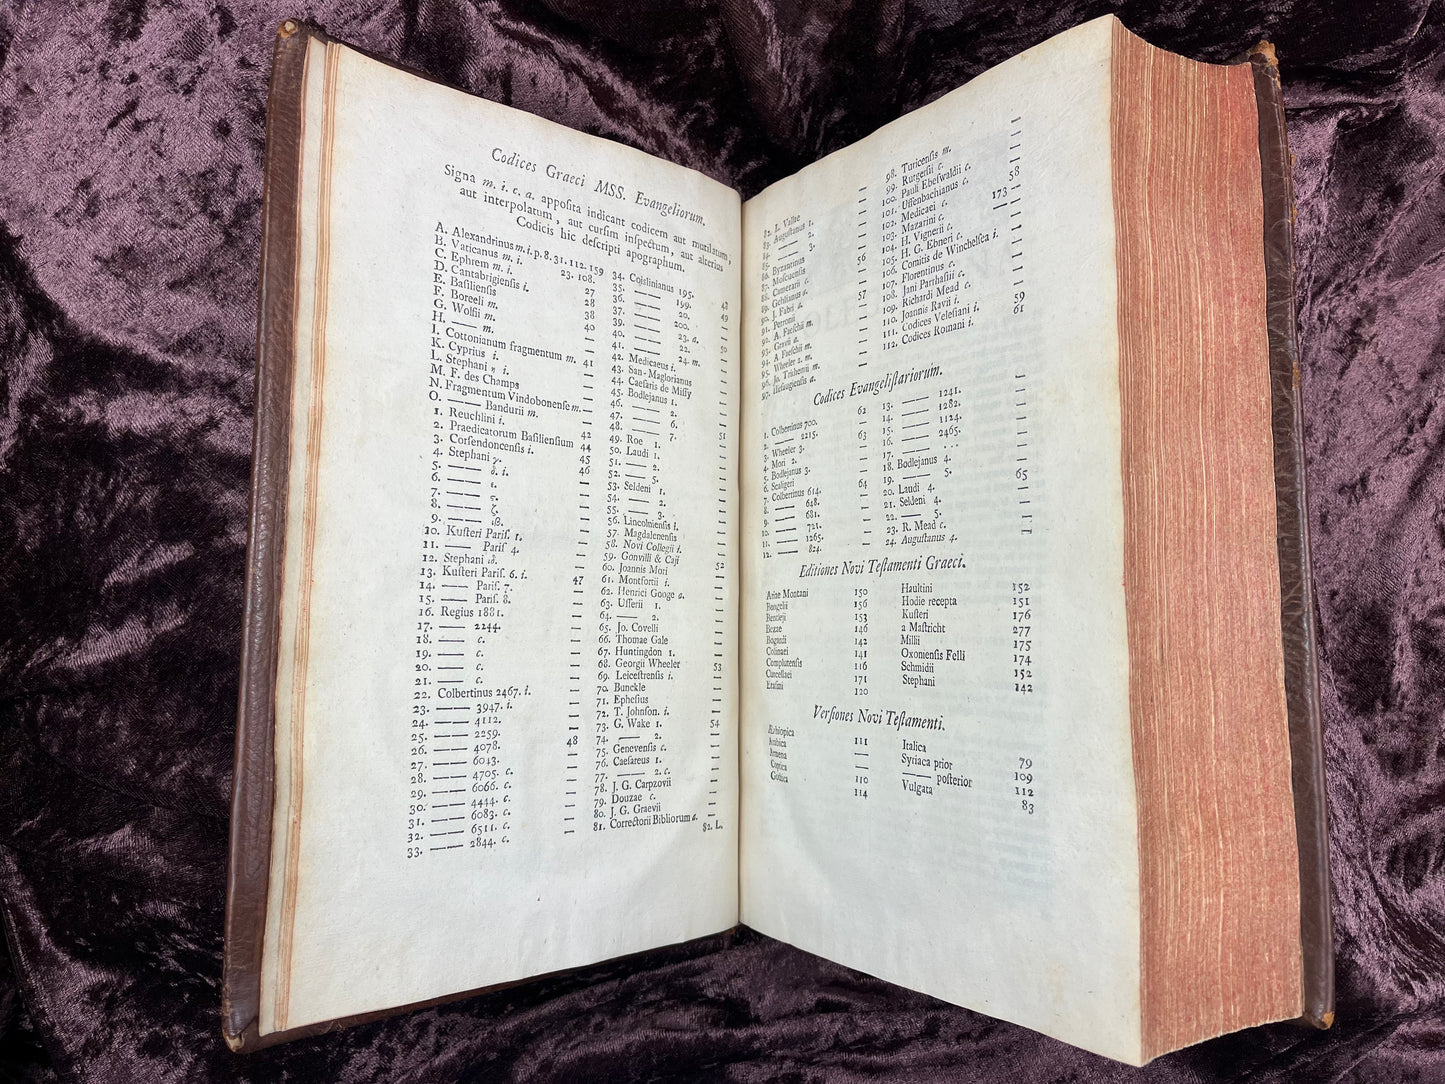 Codices Graeci MSS. Evangeliorum.
Signa m. i. c. a. apposita indicant codicem aut mutilatum,
aut interpolatum, aut cursim inspectum, aut alterius
Codicis hic descripti apographum.
A. Alexandrinus m. i. p. 8. 31. 112. 159
B. Vaticanus m. i. 23. 108.
C. Ephrem m. i. 27
D. Cantabrigiensis i. 28
E. Basiliensis 38
F. Boreeli m. 40
G. Wolfii m. —
H. —— m. —
I. Cottonianum fragmentum m. 41
K. Cyprius i. —
L. Stephani η i. —
M. F. des Champs —
N. Fragmentum Vindobonense m. —
O. —— Bandurii m. —
1. Reuchlini i. 42
2. Praedicatorum Basiliensium 44
3. Corsendoncensis i. 45
4. Stephani γ. 46
5. —— δ. i. —
6. —— ε. —
7. —— ς. —
8. —— ζ. —
9. —— ιβ. —
10. Kusteri Paris. 1. —
11. —— Paris 4. —
12. Stephani ιδ. —
13. Kusteri Paris. 6. i. 47
14. —— Paris. 7. —
15. —— Paris. 8. —
16. Regius 1881. —
17. —— 2244. —
18. —— c. —
19. —— c. —
20. —— c. —
21. —— c. —
22. Colbertinus 2467. i. —
23. —— 3947. i. —
24. —— 4112. —
25. —— 2259. 48
26. —— 4078. —
27. —— 6043. —
28. —— 4705. c. —
29. —— 6066. c. —
30. —— 4444. c. —
31. —— 6083. c. —
32. —— 6511. c. —
33. —— 2844. c. —
34. Coislinianus 195. 48
35. —— 199. 49
36. —— 20. —
37. —— 200. —
39. —— 23. a. 50
40. —— 22. —
41. —— 24. m. —
42. Medicaeus i. —
43. San-Maglorianus —
44. Caesaris de Missy —
45. Bodlejanus 1. —
46. —— 2. —
47. —— 6. —
48. —— 7. 51
49. Roe 1. —
50. Laudi 1. —
51. —— 2. —
52. —— 5. —
53. Seldeni 1. —
54. —— 2. —
55. —— 3. —
56. Lincolniensis i. —
57. Magdalenensis —
58. Novi Collegii i. —
59. Gonvilli & Caji 52
60. Joannis Mori —
61. Montfortii i. —
62. Henrici Googe a. —
63. Usserii 1. —
64. —— 2. —
65. Jo. Covelli —
66. Thomae Gale —
67. Huntingdon 1. —
68. Georgii Wheeler 53
69. Leicestrensis i. —
70. Bunckle —
71. Ephesius —
72. T. Johnson. i. —
73. G. Wake 1. 54
74. —— 2. —
75. Genevensis c. —
76. Caesareus 1. —
77. —— 2. c. —
78. J. G. Carpzovii —
79. Douzae c. —
80. J. G. Graevii —
81. Correctorii Bibliorum a. —
82. L.
82. L. Vallae —
83. Augustanus 1. —
84. —— 2. —
85. —— 3. —
86. Byzantinus 56
87. Moscuensis —
88. Camerarii c. —
89. Gehlianus a. 57
90. J. Fabri a. —
91. Petronii —
92. A. Faeschii m. —
93. Gravii a. —
94. A Faeschii m. —
95. Wheeler 2. m. —
96. Jo. Trithemii m. —
97. Hesaugiensis a. —
98. Turicensis m. —
99. Rutgersii c. —
100. Pauli Ebeswaldii c. —
101. Uffenbachianus c. 58
102. Medicaei c. 173 —
103. Mazarini c. —
104. H. Vignerii c. —
105. H. G. Ebneri c. —
106. Comitis de Winchelsea i. —
107. Florentinus c. —
108. Jani Parrhasii c. —
109. Richardi Mead c. —
110. Joannis Ravii i. 59
111. Codices Velesiani i. 61
112. Codices Romani i.
Codices Evangelistariorum.
1. Colbertinus 700. 62
2. —— 2215. 63
3. Wheeler 3. —
4. Mori 2. —
5. Bodlejanus 3. —
6. Scaligeri 64
7. Colbertinus 614. —
8. —— 648. —
9. —— 681. —
10. —— 721. —
11. —— 1265. —
12. —— 824. —
13. —— 1241. —
14. —— 1282. —
15. —— 1124. —
16. —— 2465. —
17. —— —
18. Bodlejanus 4. —
19. —— 5. 65
20. Laudi 4. —
21. Seldeni 4. —
22. —— 5. —
23. R. Mead c. —
24. Augustanus 4. —
Editiones Novi Testamenti Graeci.
Ariae Montani 150
Bengelii 156
Bentleji 153
Bezae 146
Bogardi 142
Colinaei 141
Complutensis 116
Curcellaei 171
Erasmi 120
Haultini 152
Hodie recepta 151
Kusteri 176
a Mastricht 277
Millii 175
Oxoniensis Felli 174
Schmidii 152
Stephani 142
Versiones Novi Testamenti.
Æthiopica 111
Arabica —
Armena —
Coptica 110
Gothica 114
Italica 79
Syriaca prior 109
—— posterior 112
Vulgata 83